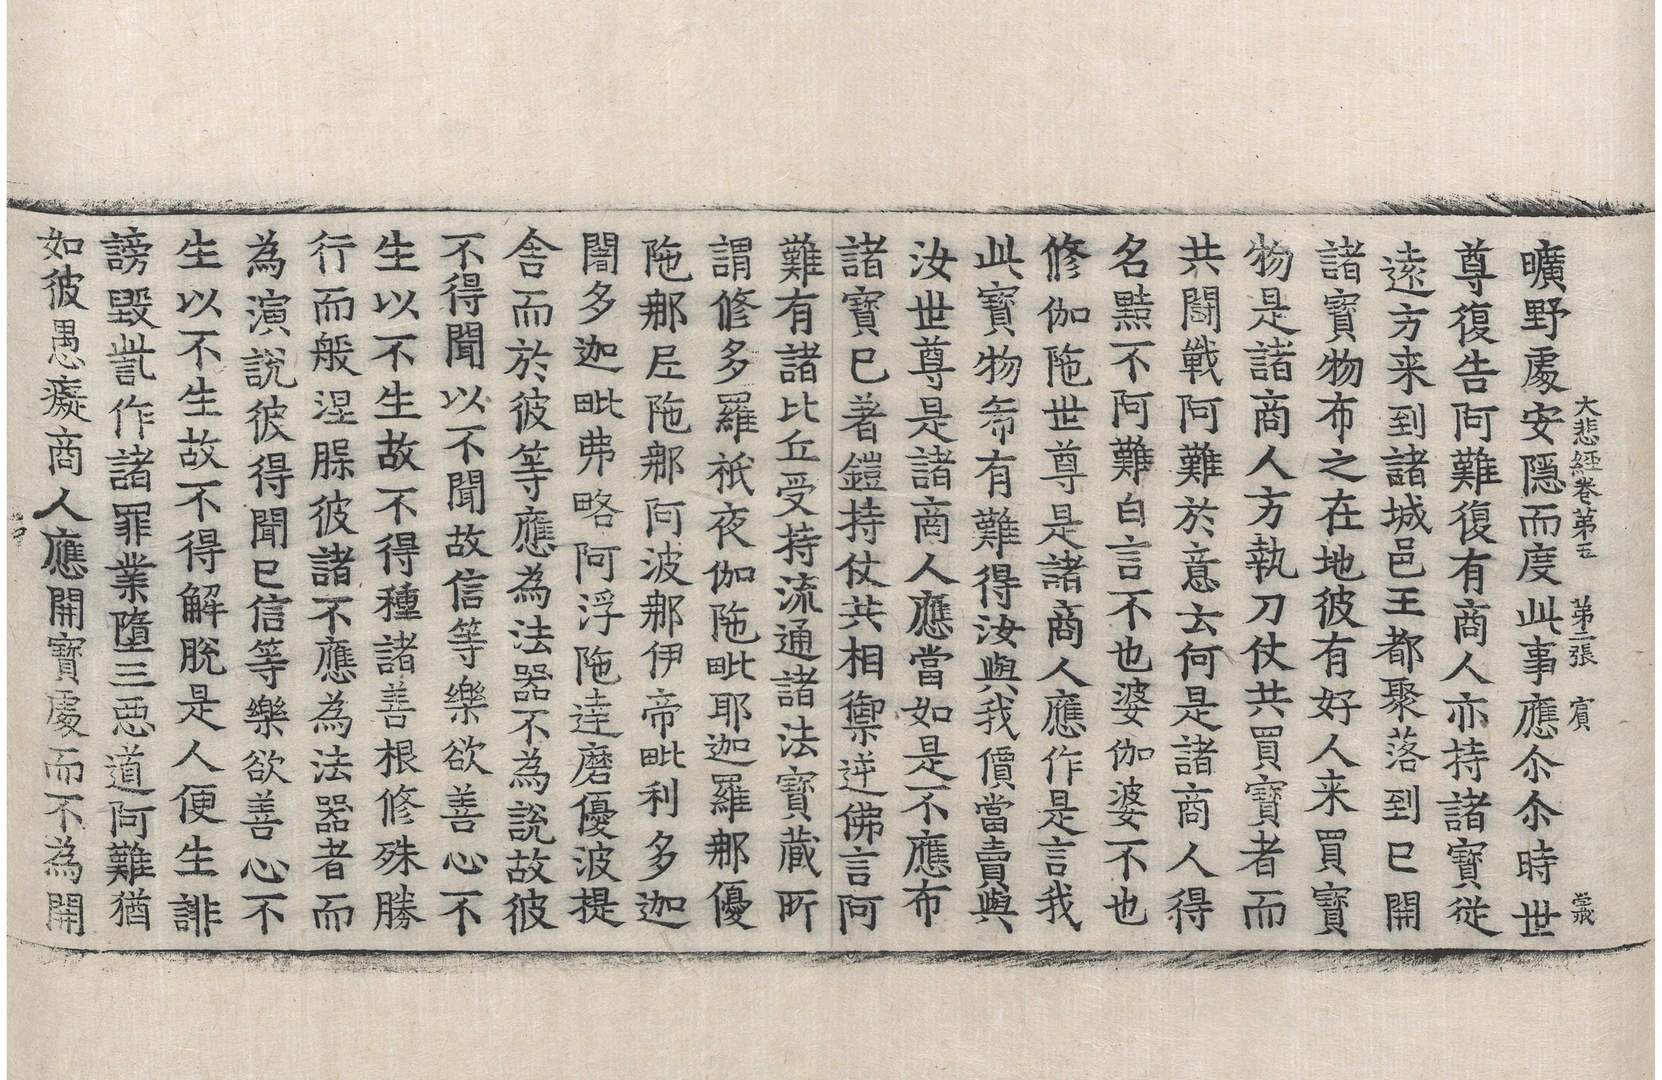 大悲經卷第五　第二張　賓
曠野處安隱而度此事應尒尒時世
尊復告阿難復有商人亦持諸寶從
遠方来到諸城邑王都聚落到已開
諸寶物布之在地彼有好人来買寶
物是諸商人方執刀仗共買寶者而
共鬪戰阿難於意云何是諸商人得
名黠不阿難白言不也婆伽婆不也
修伽陁世尊是諸商人應作是言我
此寶物希有難得汝與我價當賣與
汝世尊是諸商人應當如是不應布
諸寶已著鎧持仗共相禦逆佛言阿
難有諸比丘受持流通諸法寶藏所
謂修多羅祇夜伽陁毗耶迦羅那優
陁那尼陁那阿波那伊帝毗利多迦
闍多迦毗弗略阿浮陁達磨優波提
舍而於彼等應為法器不為說故彼
不得聞以不聞故信等樂欲善心不
生以不生故不得種諸善根修殊勝
行而般涅槃彼諸不應為法器者而
為演說彼得聞已信等樂欲善心不
生以不生故不得解脫是人便生誹
謗毀呰作諸罪業墮三惡道阿難猶
如彼愚癡商人應開寶處而不為開